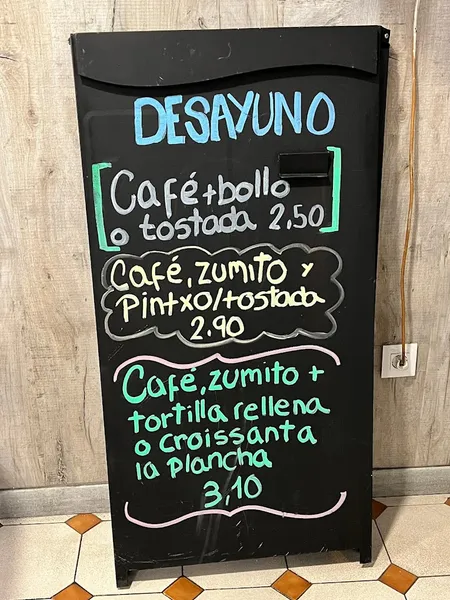 DESAYUNO
Café+bollo
o tostada 2,50
Café, zumito y
Pintxo/tostada
2.90
Café, zumito +
tortilla rellena
o croissanta
la plancha
3,10